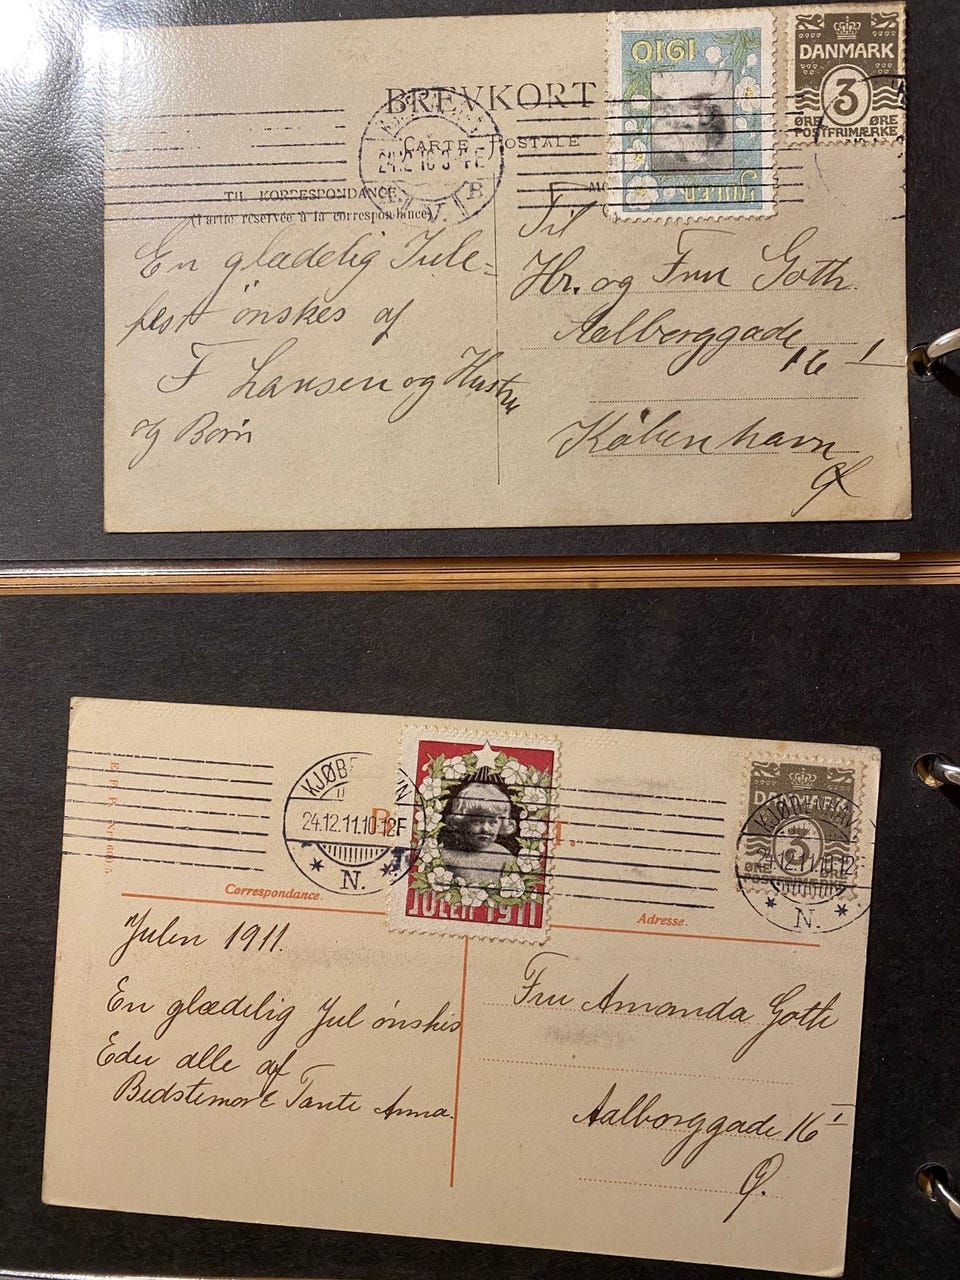 BREVKORT
CARTE POSTALE
TIL KORRESPONDANCE
(Partie réservée à la correspondance)
1910
JULEN
DANMARK
3
ØRE ØRE
POSTFRIMÆRKE
B
En glædelig Jule-
fest önskes af
F Larsen og Hustru
og Börn
Til
Hr. og Fru Goth.
Aalborggade
16 I
København
Ø
KJØB N
24.12.11.10-12F
N.
JULEN 1911
DANMARK
3
KJØBENHAVN
24.12.11.10-12
N.
Correspondance.
Adresse.
Julen 1911.
En glædelig Jul önskes
Eder alle af
Bedstemor & Tante Anna.
Fru Amanda Goth
Aalborggade 16 I
Ø.